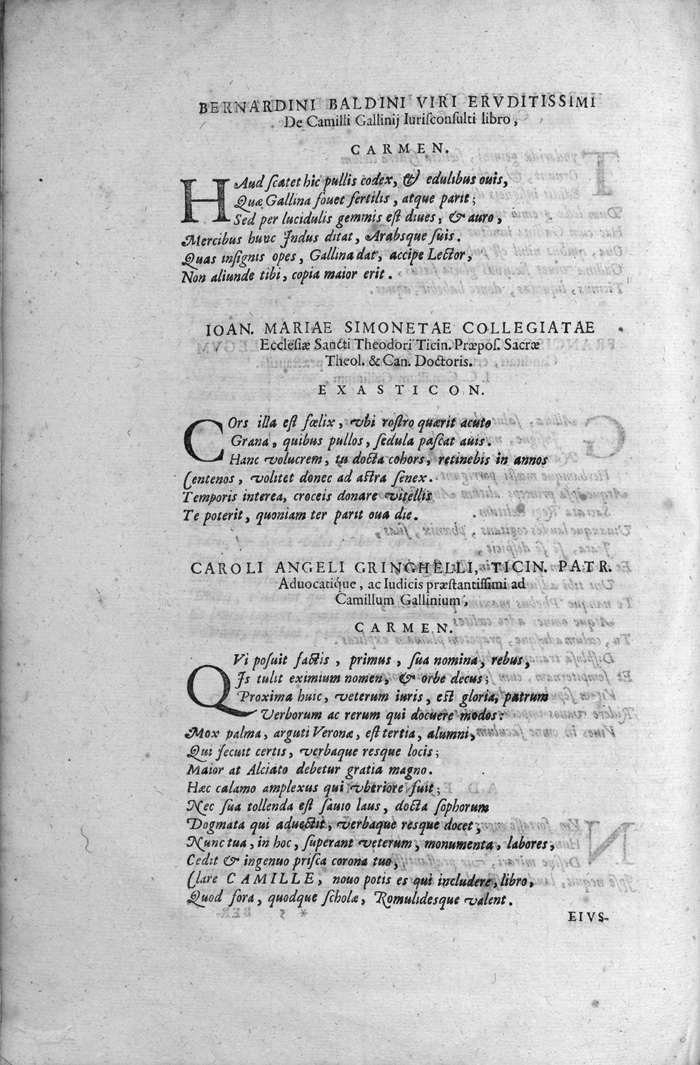 BERNARDINI BALDINI VIRI ERVDITISSIMI
De Camilli Gallinij Iurisconsulti libro,
CARMEN.
HAud scatet hic pullis codex, & edulibus ouis,
Quæ Gallina fouet fertilis, atque parit;
Sed per lucidulis gemmis est diues, & auro,
Mercibus hunc Indus ditat, Arabsque suis.
Quas insignis opes, Gallina dat, accipe Lector,
Non aliunde tibi, copia maior erit.
IOAN. MARIAE SIMONETAE COLLEGIATAE
Ecclesiæ Sancti Theodori Ticin. Præpos. Sacræ
Theol. & Can. Doctoris.
EXASTICON.
COrs illa est fœlix, vbi rostro quærit acuto
Grana, quibus pullos, sedula pascat auis.
Hanc volucrem, tu docta cohors, retinebis in annos
Centenos, volitet donec ad astra senex.
Temporis interea, croceis donare vitellis
Te poterit, quoniam ter parit oua die.
CAROLI ANGELI GRINGHELLI, TICIN. PATR.
Aduocatique, ac Iudicis præstantissimi ad
Camillum Gallinium,
CARMEN.
QVi posuit factis, primus, sua nomina, rebus,
Is tulit eximium nomen, & orbe decus;
Proxima huic, veterum iuris, est gloria, patrum
Verborum ac rerum qui docuere modos:
Mox palma, arguti Veronæ, est tertia, alumni,
Qui secuit certis, verbaque resque locis;
Maior at Alciato debetur gratia magno.
Hæc calamo amplexus qui vberiore fuit;
Nec sua tollenda est sauio laus, docta sophorum
Dogmata qui aduectit, verbaque resque docet;
Nunc tua, in hoc, superant veterum, monumenta, labores,
Cedit & ingenuo prisca corona tuo,
Clare CAMILLE, nouo potis es qui includere, libro,
Quod fora, quodque scholæ, Romulidesque valent.
EIVS-